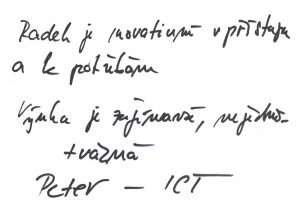 Radek je inovativní v přístupu
a k potřebám
Výuka je zajímavá, nejedno-
tvárná
Peter - ICT